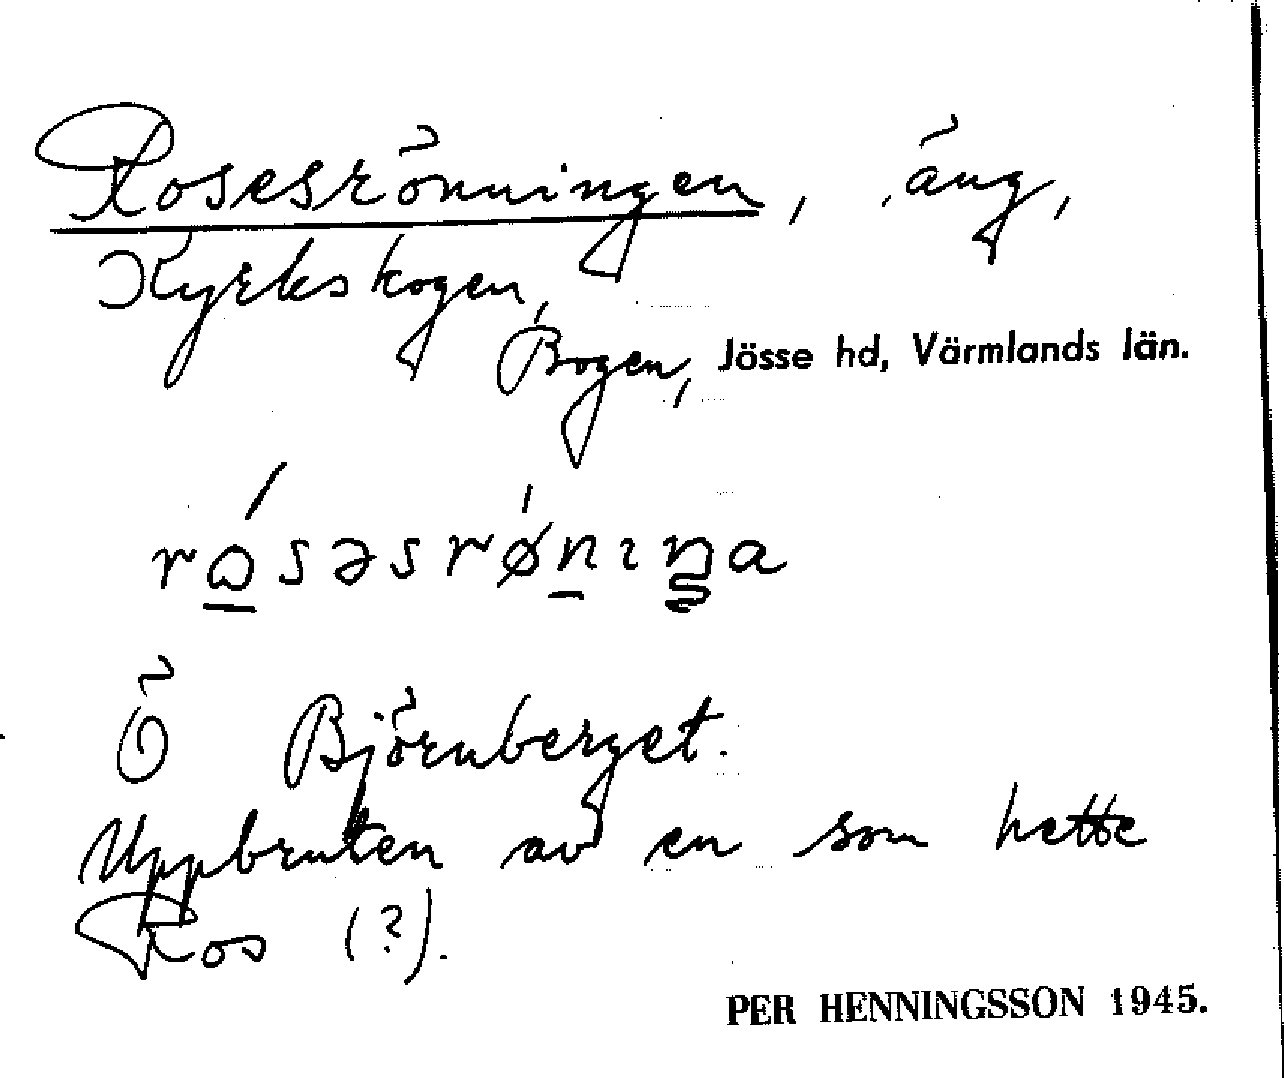 Rosesrönningen, äng,
Kyrkskogen,
Bogen, Jösse hd, Värmlands län.
rɷ́səsrǿnıŋa
Ö Björnberget.
Uppbruten av en som hette
Ros (?).
PER HENNINGSSON 1945.